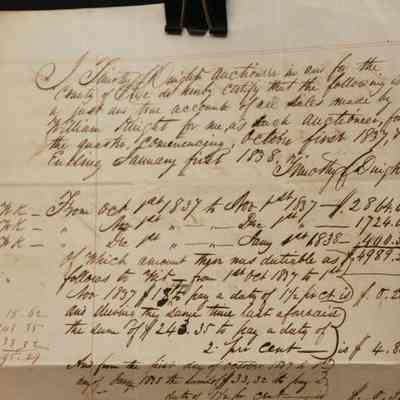 I Timothy Knight auctioneer in and for the
County of do hereby certify that the following is
a just and true account of all sales made by
William Knight for me, as such auctioneer, for
the quarter, Commencing, october first 1837,
Ending January first 1838,
Timothy
WK — From oct 1st 1837 to Nov 1st 1837 — $2864.
WK — " Nov 1st " — " Dec 1st " — 1724.
WK — " Dec 1st " — " Jany 1st 1838 — 400.
of which amount there was dutiable as $4989.
follows to Wit — from 1st oct 1837 to 1st
Nov 1837 to pay a duty of 1½ pr ct is $0.
and during the same time last aforesaid
the sum of $243.35 to pay a duty of
2 - pr cent — is $4.8
15.62
243.35
33.32
And from the first day of october 1837 to
day of Jany 1838 the sum of $33,32 to pay
duty of pr cent —